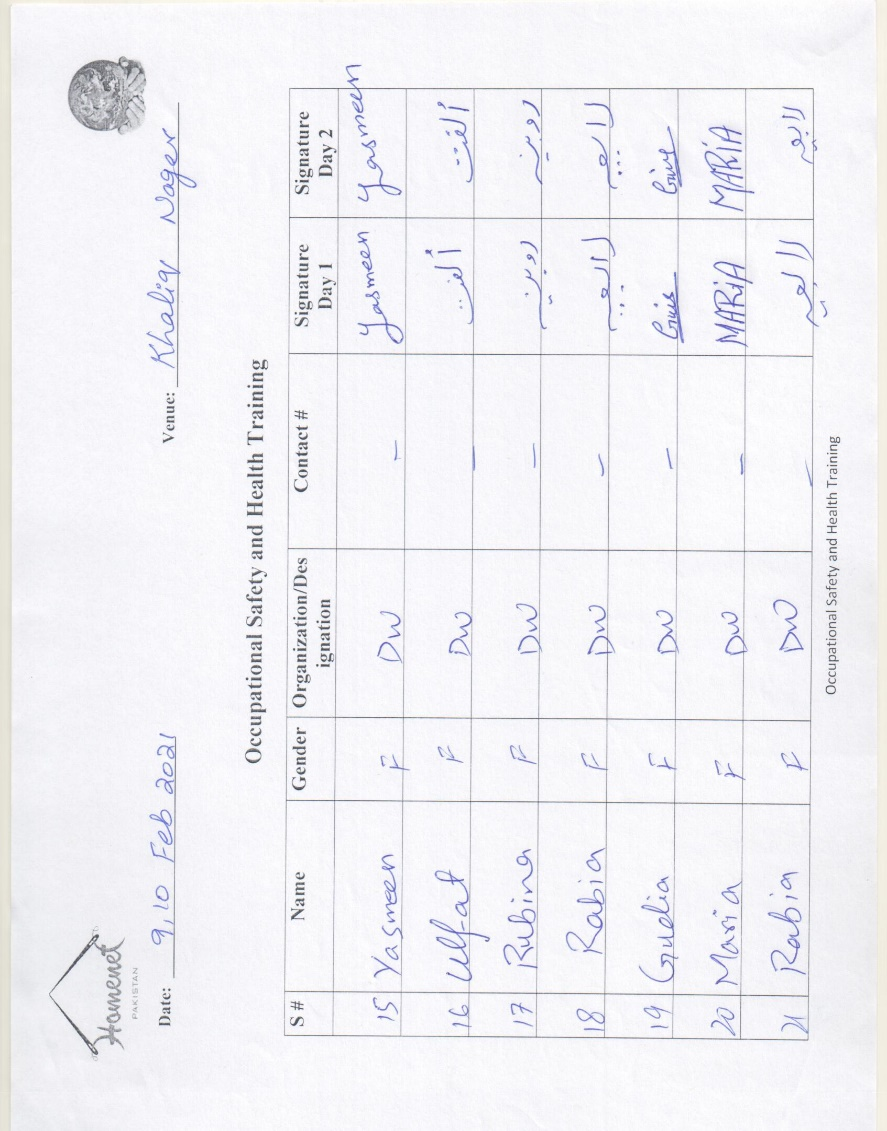 Homenet
PAKISTAN
Date: 9,10 Feb 2021 Venue: Khaliq Nager
Occupational Safety and Health Training
S # Name Gender Organization/Designation Contact # Signature Day 1 Signature Day 2
15 Yasmeen F DW - Yasmeen Yasmeen
16 Ulfat F DW - ألفت ألفت
17 Rubina F DW - روبینہ روبینہ
18 Rabia F DW - رابعہ رابعہ
19 Gudia F DW -
20 Maria F DW - MARIA MARIA
21 Rabia F DW - رابعہ رابعہ
Occupational Safety and Health Training